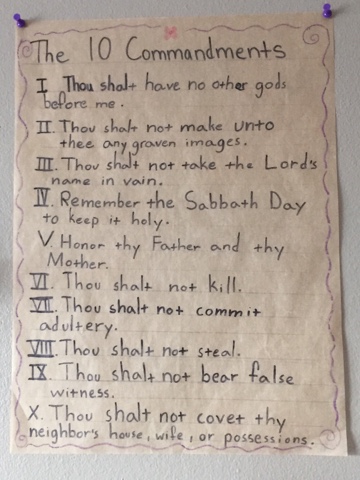 The 10 Commandments
I Thou shalt have no other gods
before me.
II. Thou shalt not make unto
thee any graven images.
III. Thou shalt not take the Lord's
name in vain.
IV. Remember the Sabbath Day
to keep it holy.
V. Honor thy Father and thy
Mother.
VI. Thou shalt not kill.
VII. Thou shalt not commit
adultery.
VIII. Thou shalt not steal.
IX. Thou shalt not bear false
witness.
X. Thou shalt not covet thy
neighbor's house, wife, or possessions.